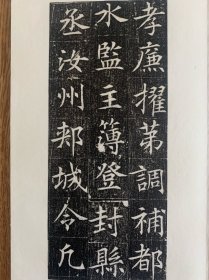 孝廉擢苐調補都
水監主薄登封縣
丞汝州郟城令凡